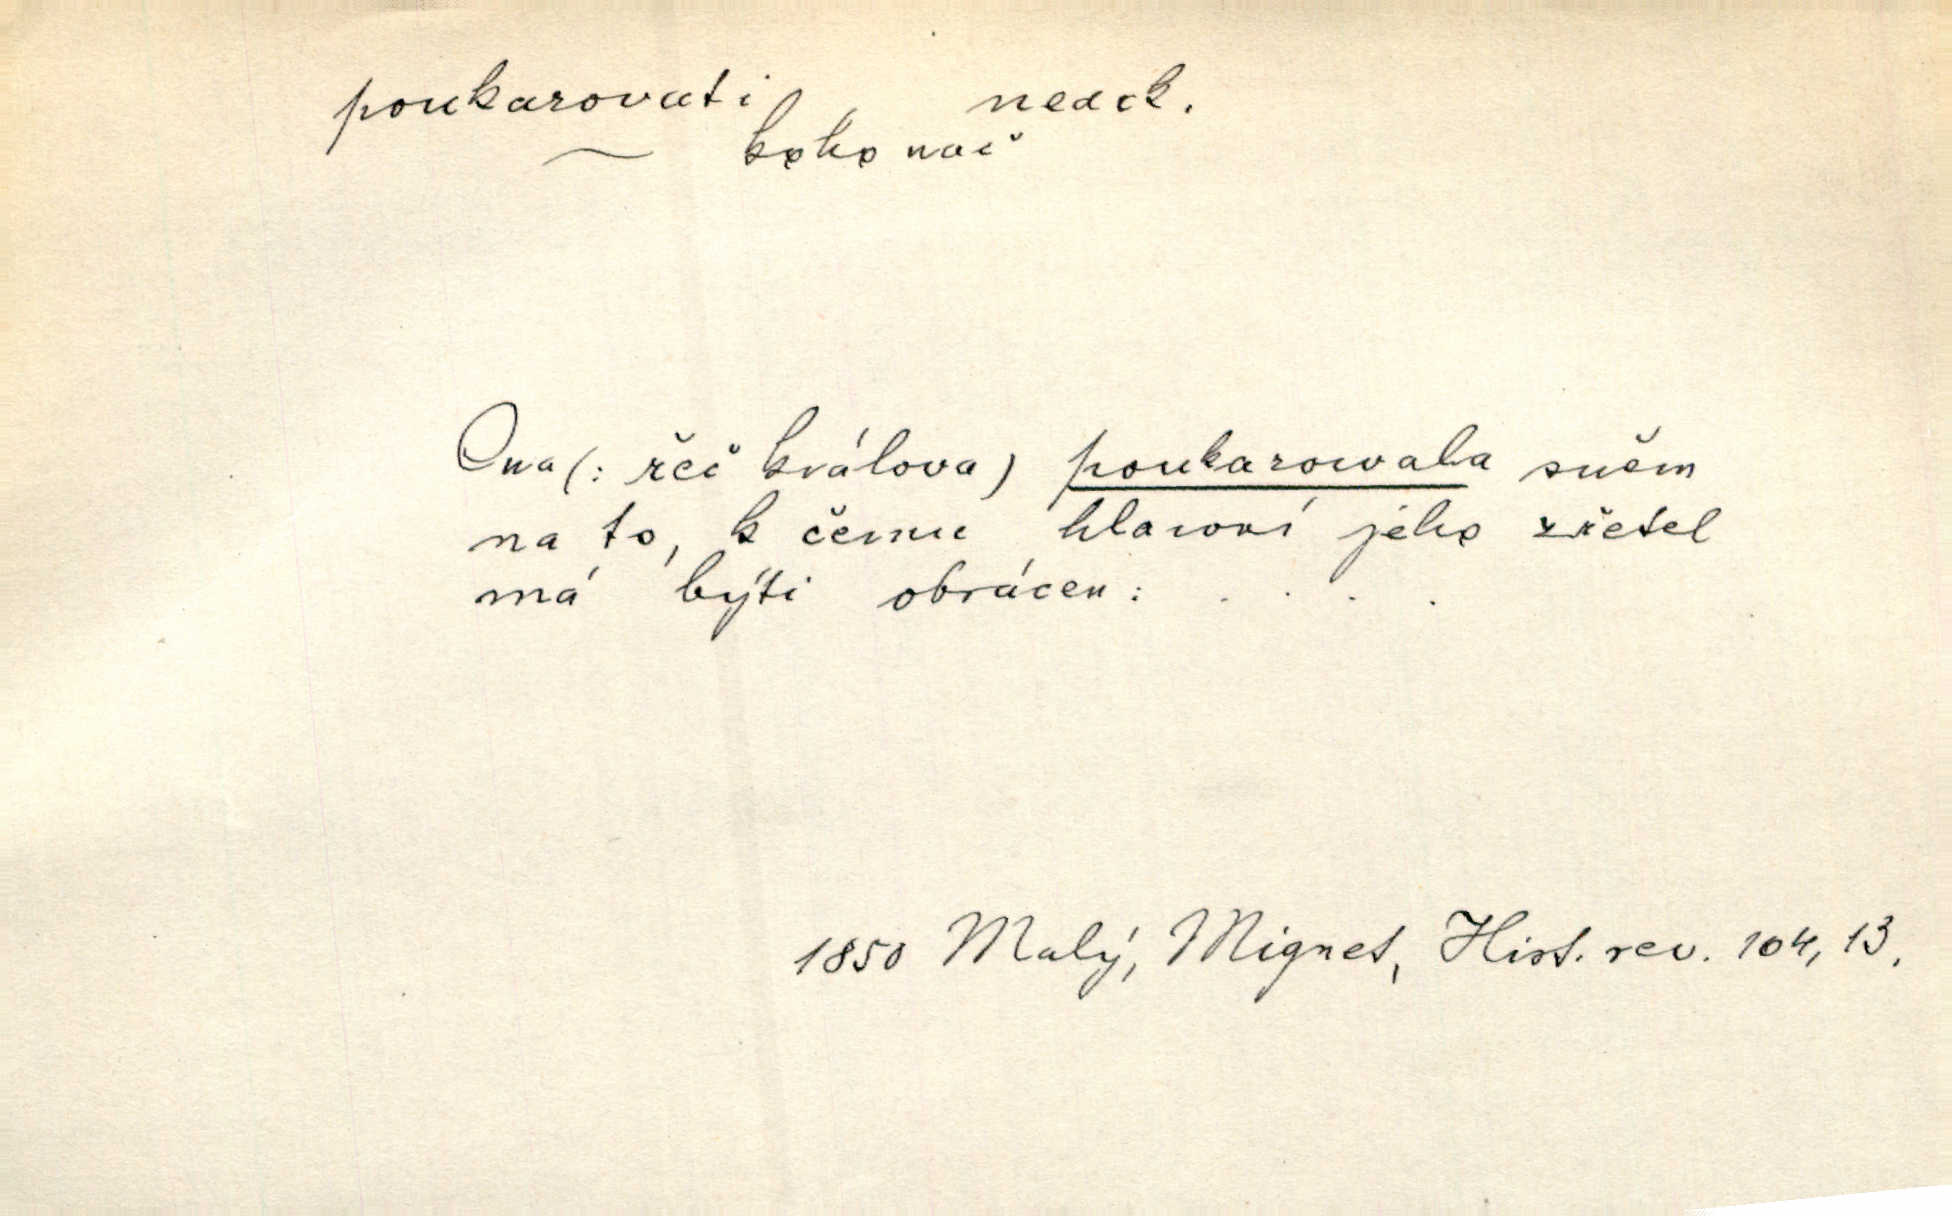 poukazovati nedok.
~ koho nač
Ona (: řeč králova) poukazowala sněm
na to, k čemu hlawní jeho zřetel
má býti obrácen: . . . .
1850 Malý, Mignet, Hist. rev. 104, 13.